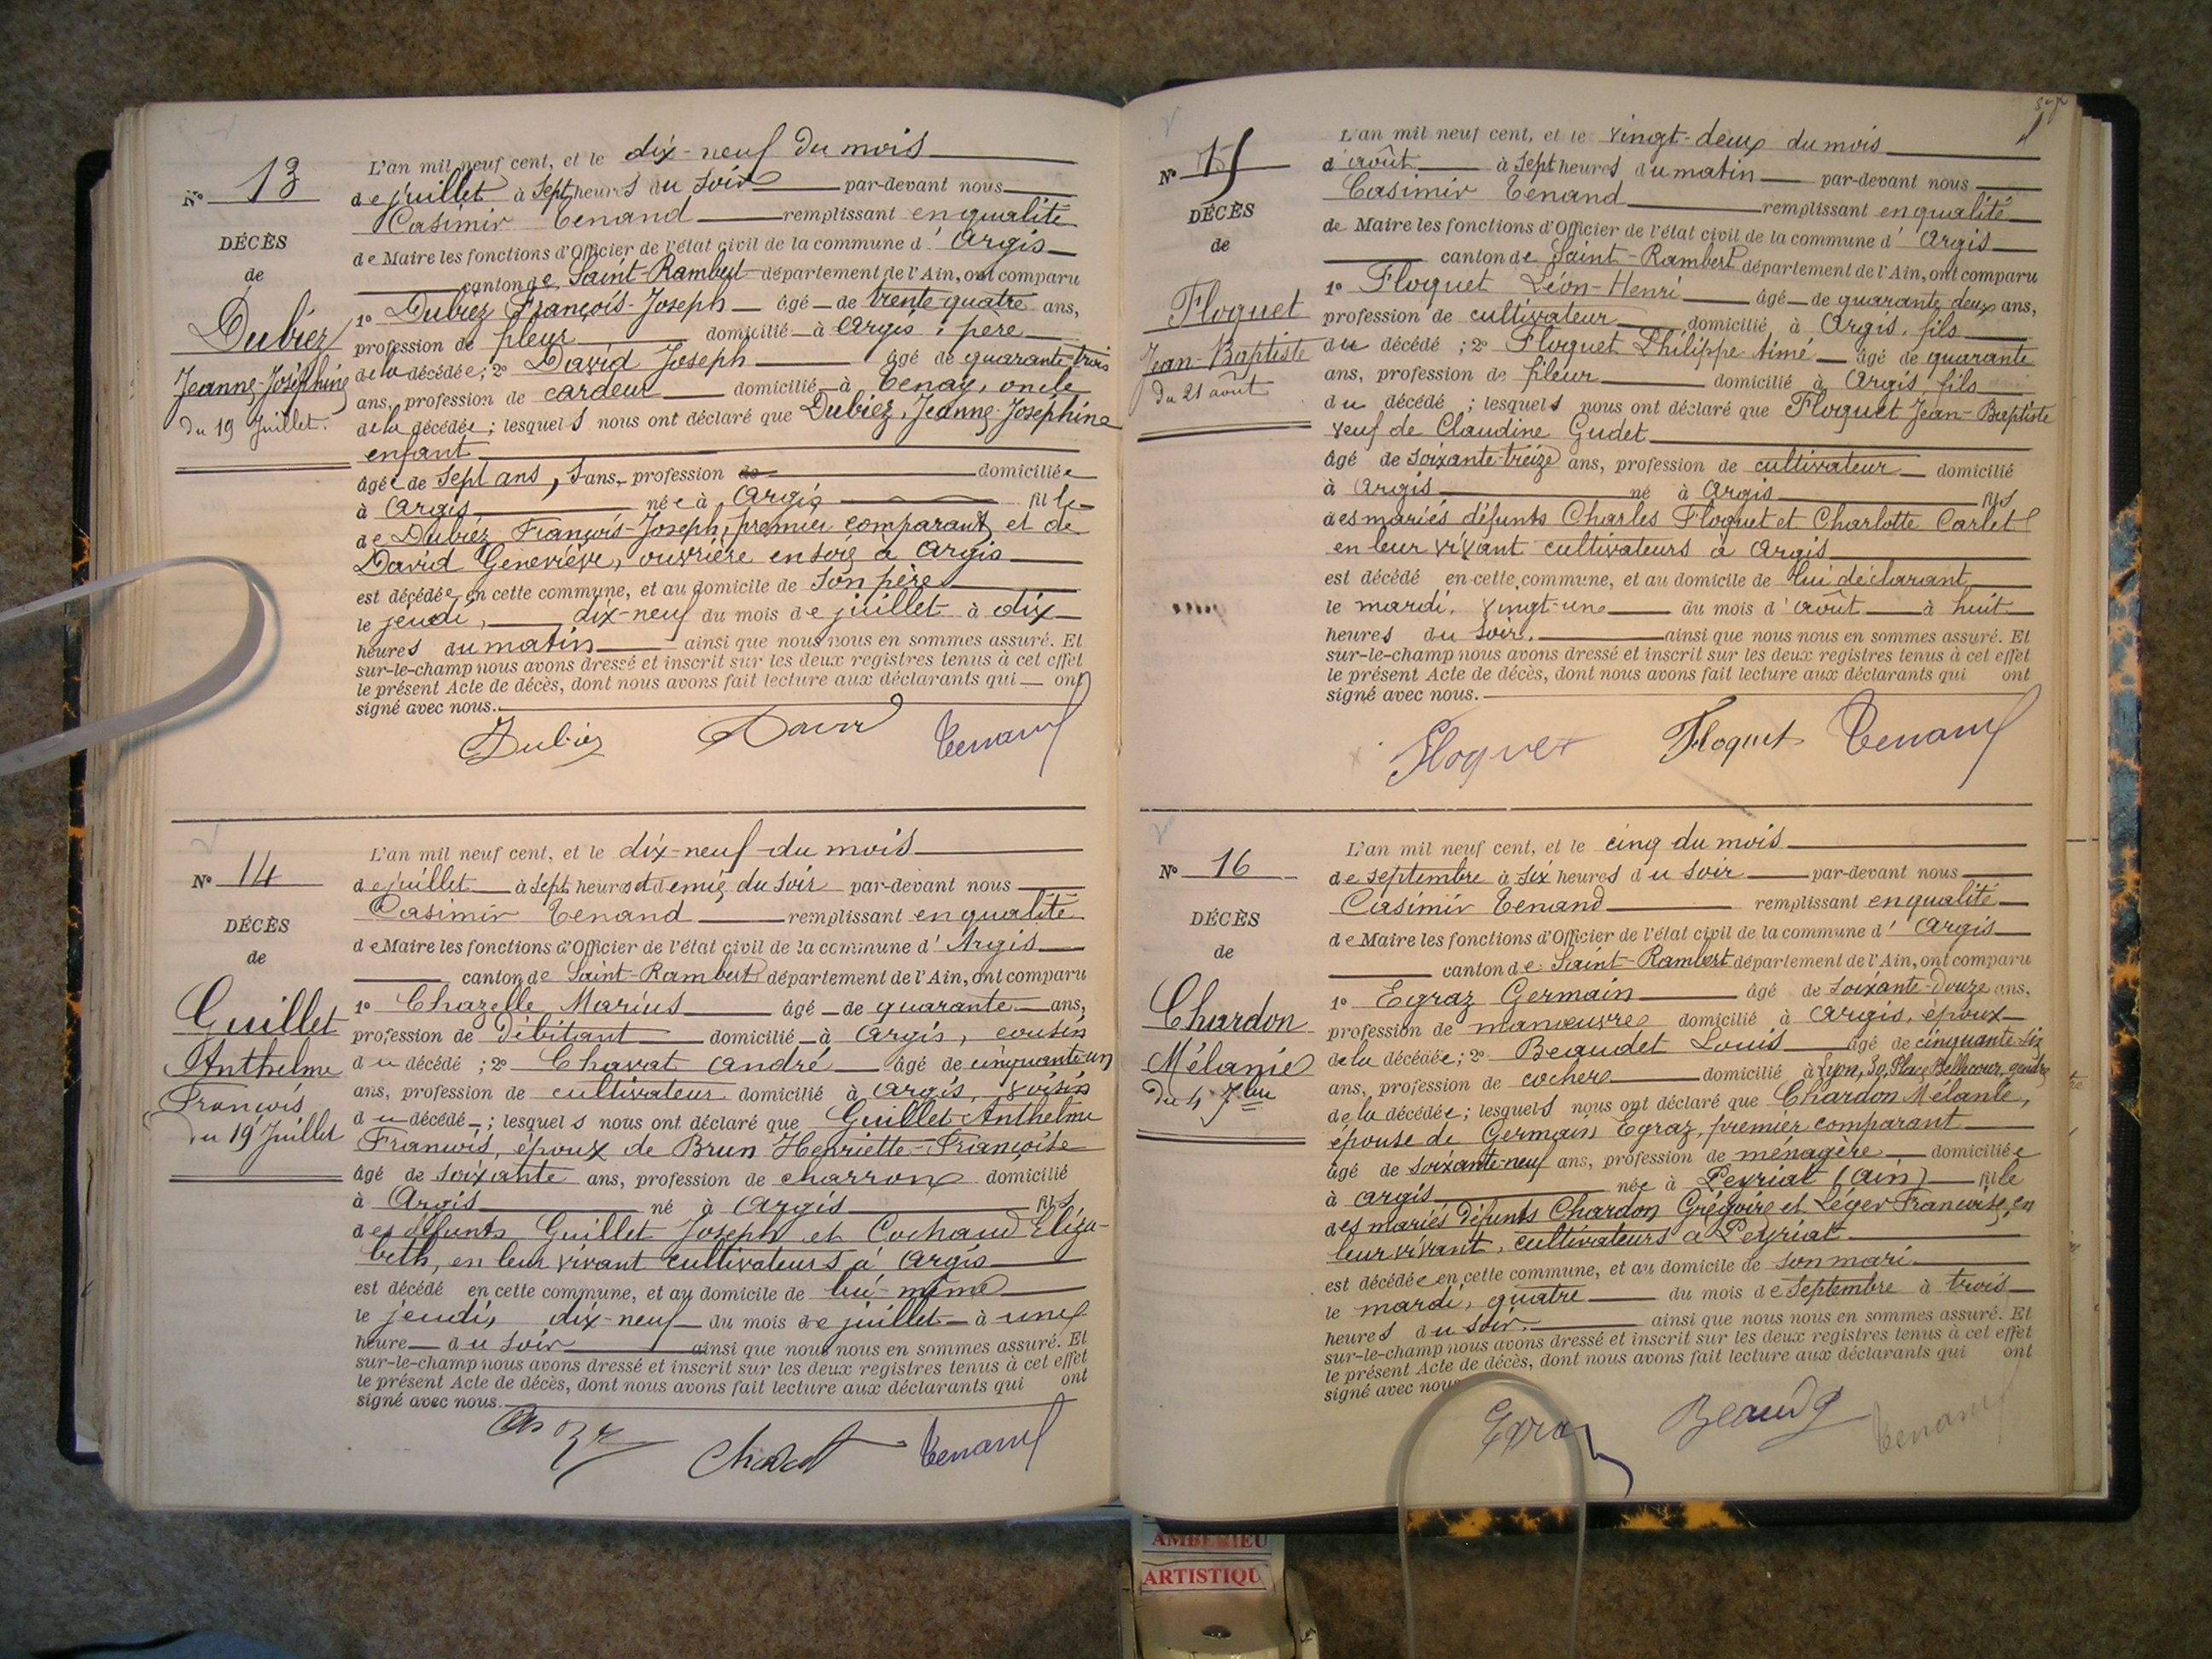 Nº 13
DÉCÈS
de
Dubiez
Jeanne-Joséphine
du 19 Juillet.
L'an mil neuf cent, et le dix-neuf du mois
de juillet à sept heures du soir par-devant nous
Casimir Tenand remplissant en qualité
de Maire les fonctions d'Officier de l'état civil de la commune d'Argis
canton de Saint-Rambert département de l'Ain, ont comparu
1º Dubiez François-Joseph âgé de trente-quatre ans,
profession de fileur domicilié à Argis, père
de la décédée; 2º David Joseph âgé de quarante-trois
ans, profession de cardeur domicilié à Tenay, oncle
de la décédée; lesquels nous ont déclaré que Dubiez, Jeanne-Joséphine
enfant
âgée de Sept ans, sans profession de domiciliée
à Argis née à Argis fille
de Dubiez François-Joseph, premier comparant, et de
David Geneviève, ouvrière en soie à Argis
est décédée en cette commune, et au domicile de son père
le jeudi, dix-neuf du mois de juillet à dix
heures du matin ainsi que nous nous en sommes assuré. Et
sur-le-champ nous avons dressé et inscrit sur les deux registres tenus à cet effet
le présent Acte de décès, dont nous avons fait lecture aux déclarants qui ont
signé avec nous.
Dubiez David Tenand
Nº 14
DÉCÈS
de
Guillet
Anthelme
François
du 19 Juillet
L'an mil neuf cent, et le dix-neuf du mois
de juillet à sept heures et demie du soir par-devant nous
Casimir Tenand remplissant en qualité
de Maire les fonctions d'Officier de l'état civil de la commune d'Argis
canton de Saint-Rambert département de l'Ain, ont comparu
1º Chazelle Marius âgé de quarante ans,
profession de Débitant domicilié à Argis, cousin
du décédé; 2º Chavat André âgé de cinquante-un
ans, profession de cultivateur domicilié à Argis, voisin
du décédé; lesquels nous ont déclaré que Guillet Anthelme
François, époux de Brun Henriette-Françoise
âgé de soixante ans, profession de charron domicilié
à Argis né à Argis fils
des défunts Guillet Joseph et Cochaud Eliza-
beth, en leur vivant cultivateurs à Argis
est décédé en cette commune, et au domicile de lui-même
le jeudi, dix-neuf du mois de juillet à une
heure du soir ainsi que nous nous en sommes assuré. Et
sur-le-champ nous avons dressé et inscrit sur les deux registres tenus à cet effet
le présent Acte de décès, dont nous avons fait lecture aux déclarants qui ont
signé avec nous.
Chavat Tenand
Nº 15
DÉCÈS
de
Floquet
Jean-Baptiste
du 21 août
L'an mil neuf cent, et le vingt-deux du mois
d'août à sept heures du matin par-devant nous
Casimir Tenand remplissant en qualité
de Maire les fonctions d'Officier de l'état civil de la commune d'Argis
canton de Saint-Rambert département de l'Ain, ont comparu
1º Floquet Léon-Henri âgé de quarante deux ans,
profession de cultivateur domicilié à Argis, fils
du décédé; 2º Floquet Philippe Aimé âgé de quarante
ans, profession de fileur domicilié à Argis fils
du décédé; lesquels nous ont déclaré que Floquet Jean-Baptiste
veuf de Claudine Gudet
âgé de soixante-treize ans, profession de cultivateur domicilié
à Argis né à Argis fils
des mariés défunts Charles Floquet et Charlotte Carlet
en leur vivant cultivateurs à Argis
est décédé en cette commune, et au domicile de lui déclarant
le mardi, vingt-un du mois d'août à huit
heures du soir. ainsi que nous nous en sommes assuré. Et
sur-le-champ nous avons dressé et inscrit sur les deux registres tenus à cet effet
le présent Acte de décès, dont nous avons fait lecture aux déclarants qui ont
signé avec nous.
Floquet Floquet Tenand
Nº 16
DÉCÈS
de
Chardon
Mélanie
du 4 7bre
L'an mil neuf cent, et le cinq du mois
de septembre à six heures du soir par-devant nous
Casimir Tenand remplissant en qualité
de Maire les fonctions d'Officier de l'état civil de la commune d'Argis
canton de Saint-Rambert département de l'Ain, ont comparu
1º Egraz Germain âgé de soixante-douze ans,
profession de manœuvre domicilié à Argis, époux
de la décédée; 2º Beaudet Louis âgé de cinquante-six
ans, profession de cocher domicilié à Lyon, 30, Place Bellecour, gendre
de la décédée; lesquels nous ont déclaré que Chardon Mélanie,
épouse de Germain Egraz, premier comparant
âgé de soixante-neuf ans, profession de ménagère domiciliée
à Argis née à Peyriat (Ain) fille
des mariés défunts Chardon Grégoire et Léger Françoise, en
leur vivant, cultivateurs à Peyriat
est décédée en cette commune, et au domicile de son mari
le mardi, quatre du mois de Septembre à trois
heures du soir. ainsi que nous nous en sommes assuré. Et
sur-le-champ nous avons dressé et inscrit sur les deux registres tenus à cet effet
le présent Acte de décès, dont nous avons fait lecture aux déclarants qui ont
signé avec nous
Egraz Beaud Tenand
AMBERIEU
ARTISTIQU